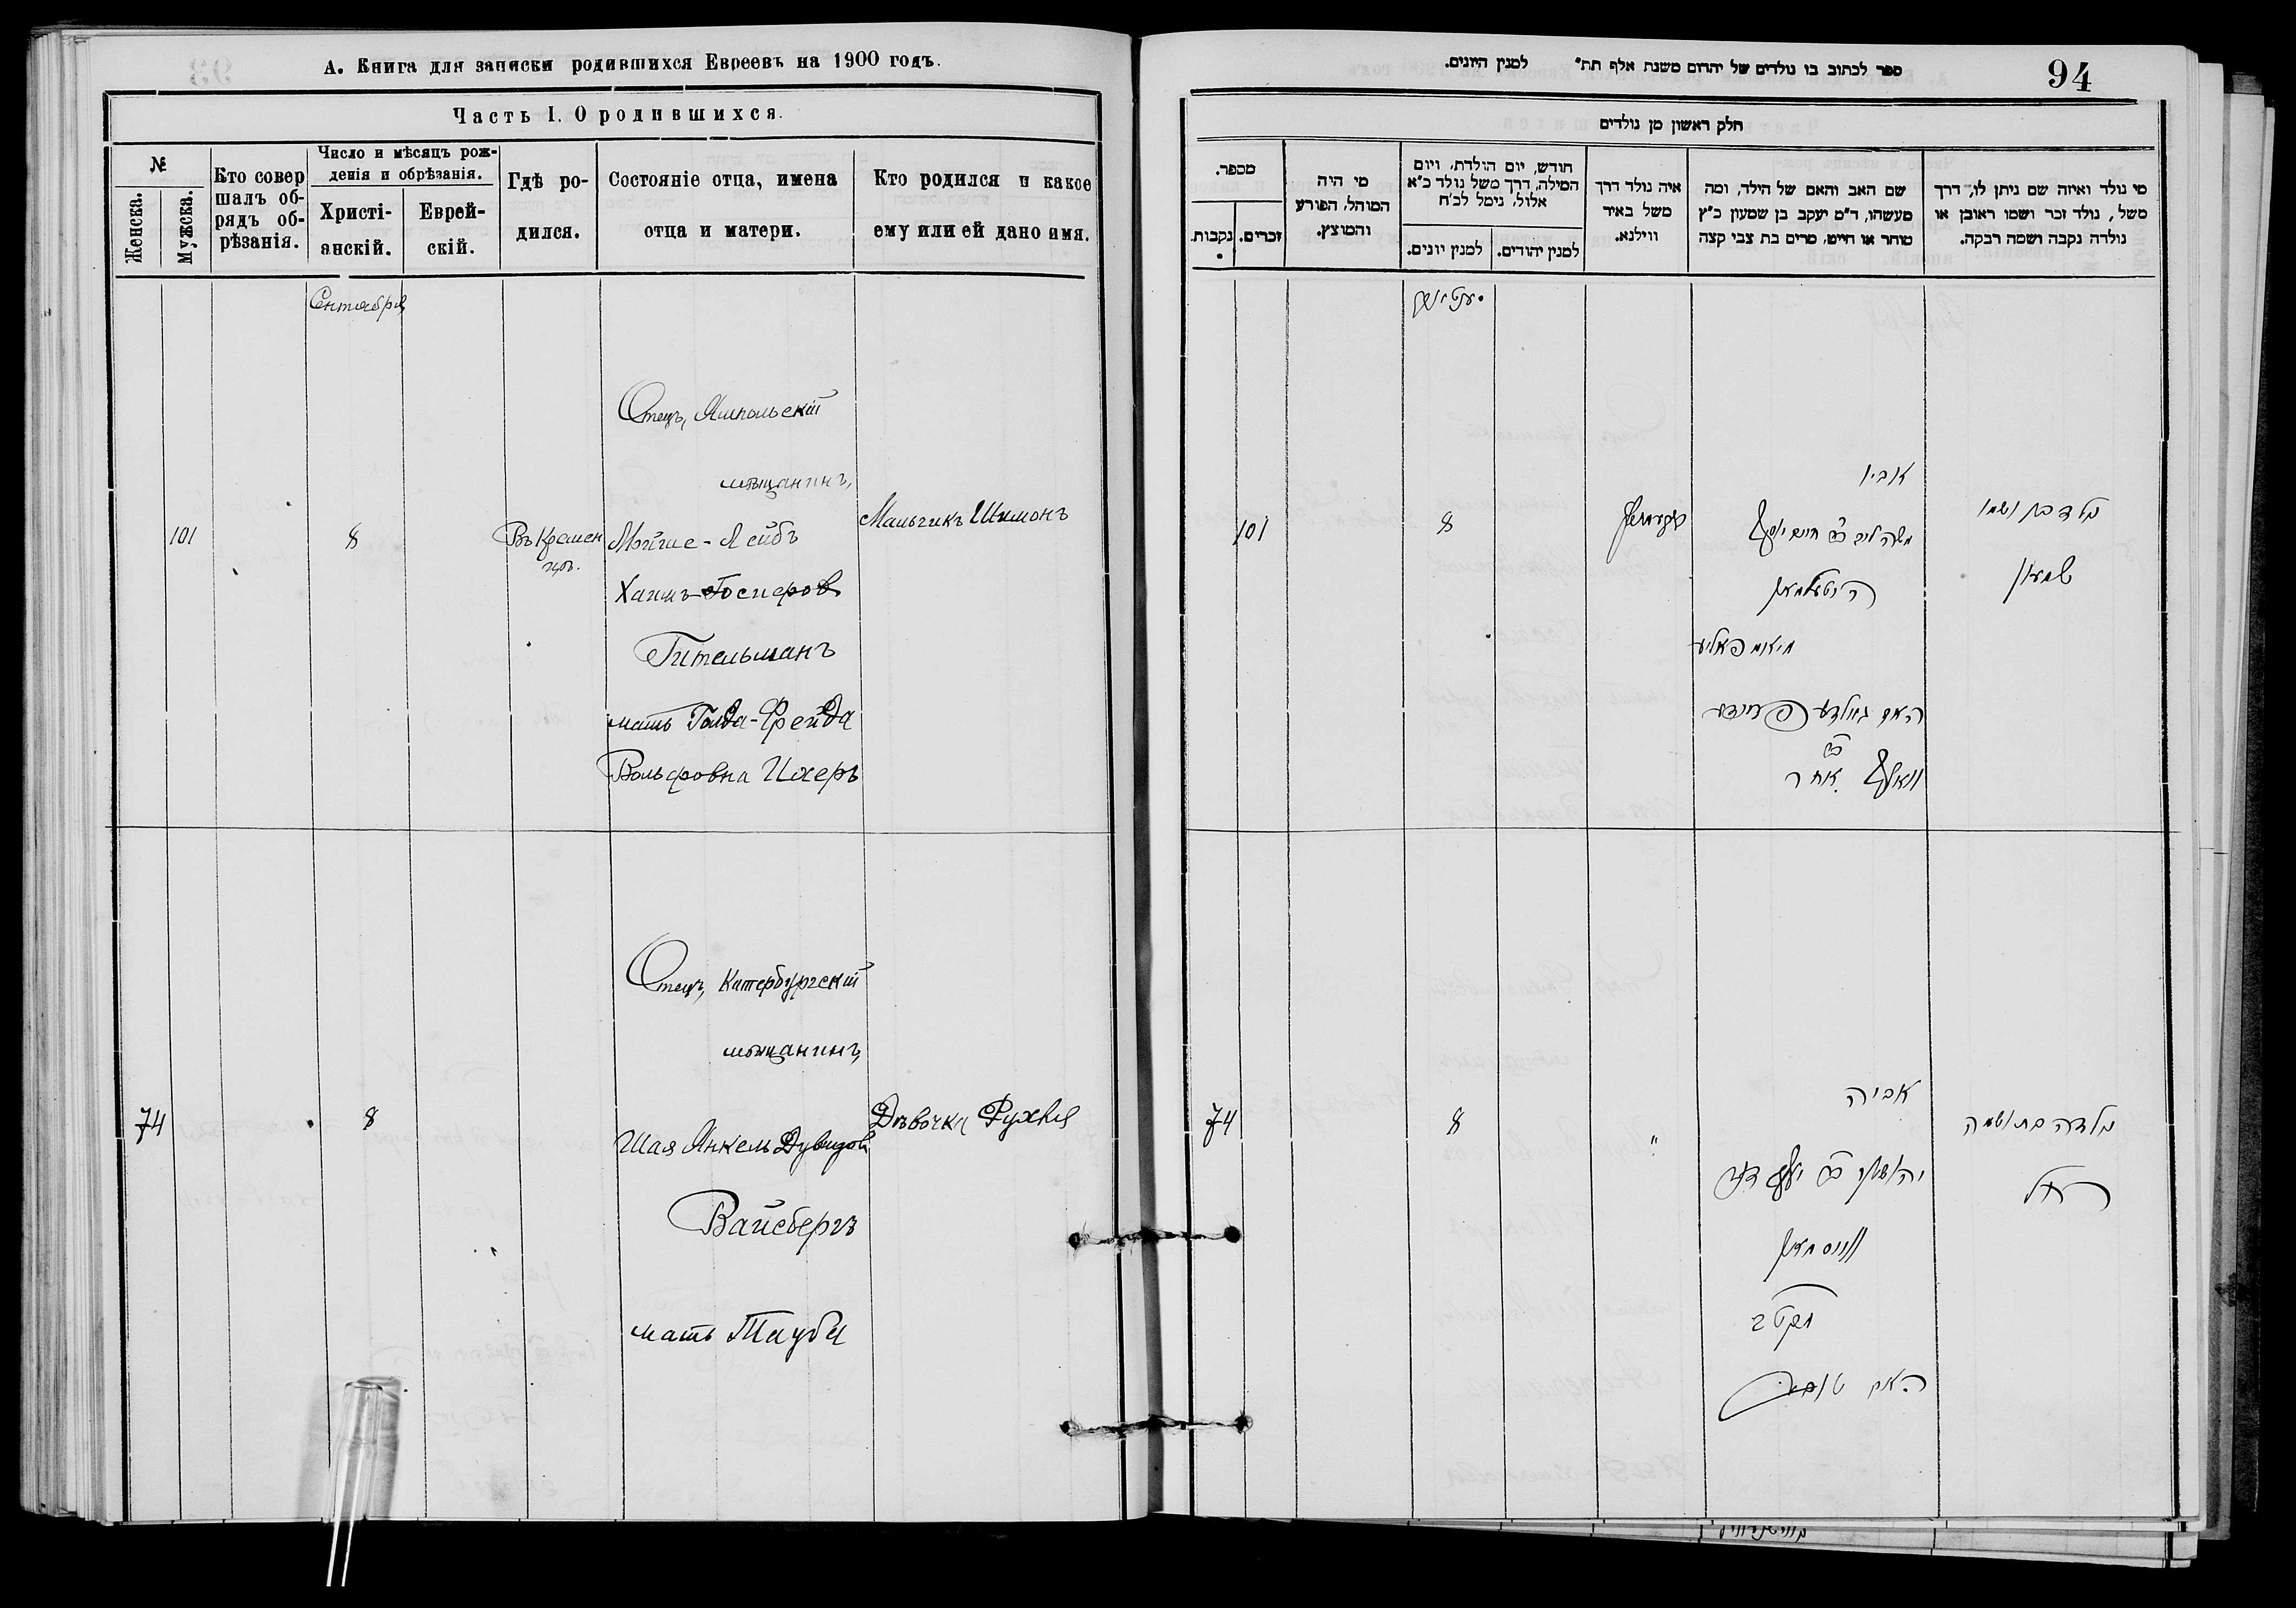 А. Книга для записки родившихся Евреевъ на 1900 годъ.
Часть I. О родившихся.
№
Женска.
Мужска.
Кто совер
шалъ об-
рядъ об-
рѣзанія.
Число и мѣсяцъ рож-
денія и обрѣзанія.
Христі-
анскій.
Еврей-
скій.
Гдѣ ро-
дился.
Состояніе отца, имена
отца и матери.
Кто родился и какое
ему или ей дано имя.
Сентября
101
8
Въ Кремен
цѣ.
Отецъ, Ямпольскій
мѣщанинъ,
Мойше-Лейбъ
Хаимъ-Іосифовъ
Гительманъ
мать Голда-Фрейда
Вольфовна Ихеръ
Мальчикъ Шимонъ
74
8
Отецъ, Катербургскій
мѣщанинъ,
Шая Янкель Дувидов
Вайсбергъ
мать Тауба
Дѣвочка Рухля
94
ספר לכתוב בו נולדים של יהדום משנת אלף תת״ למנין היונים.
חלק ראשון מן נולדים
מספר.
נקבות.
זכרים.
מי היה
המוהל, הפורע
והמוצץ.
חודש, יום הולדת, ויום
המילה, דרך משל נולד כ״א
אלול, נימל לכ׳ח
למנין יונים.
למנין יהודים.
איה נולד דרך
משל באיר
ווילנא.
שם האב והאם של הילד, ומה
מעשהו, ד״מ יעקב בן שמעון כ״ץ
סוחר או חייט, מרים בת צבי קצה
מי נולד ואיזה שם ניתן לו, דרך
משל, נולד זכר ושמו ראובן או
נולדה נקבה ושמה רבקה.
101
8
אביו
משה ליב ב״ר חיים יוסף
היטעלמאן
האם גאלדע פריידע
ב״ר
וואלף אחר
נולד בן ושמו
שמעון
74
8
"
אביה
ווייסמאן
האם טובא
נולדה בת ושמה
רחל